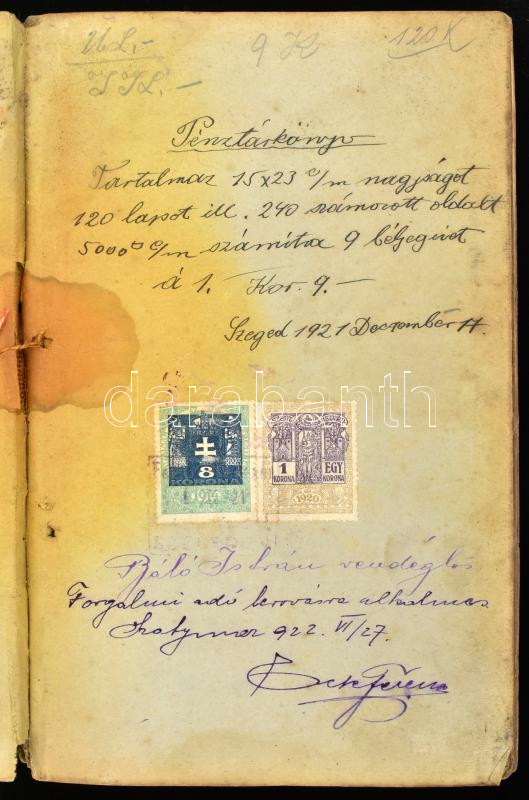 9 K
120 K
Pénztárkönyv
Tartalmaz 15x23 c/m nagyságot
120 lapot ill. 240 számozott oldalt
5000□ c/m számitva 9 bélyegivet
á 1. Kor. 9.-
Szeged 1921 December 17.
darabanth
8
KORONA
1
KORONA
EGY
KORONA
1920
Báló István vendéglős
Forgalmi adó lerovásra alkalmas
Szatymaz 922. VI/27.